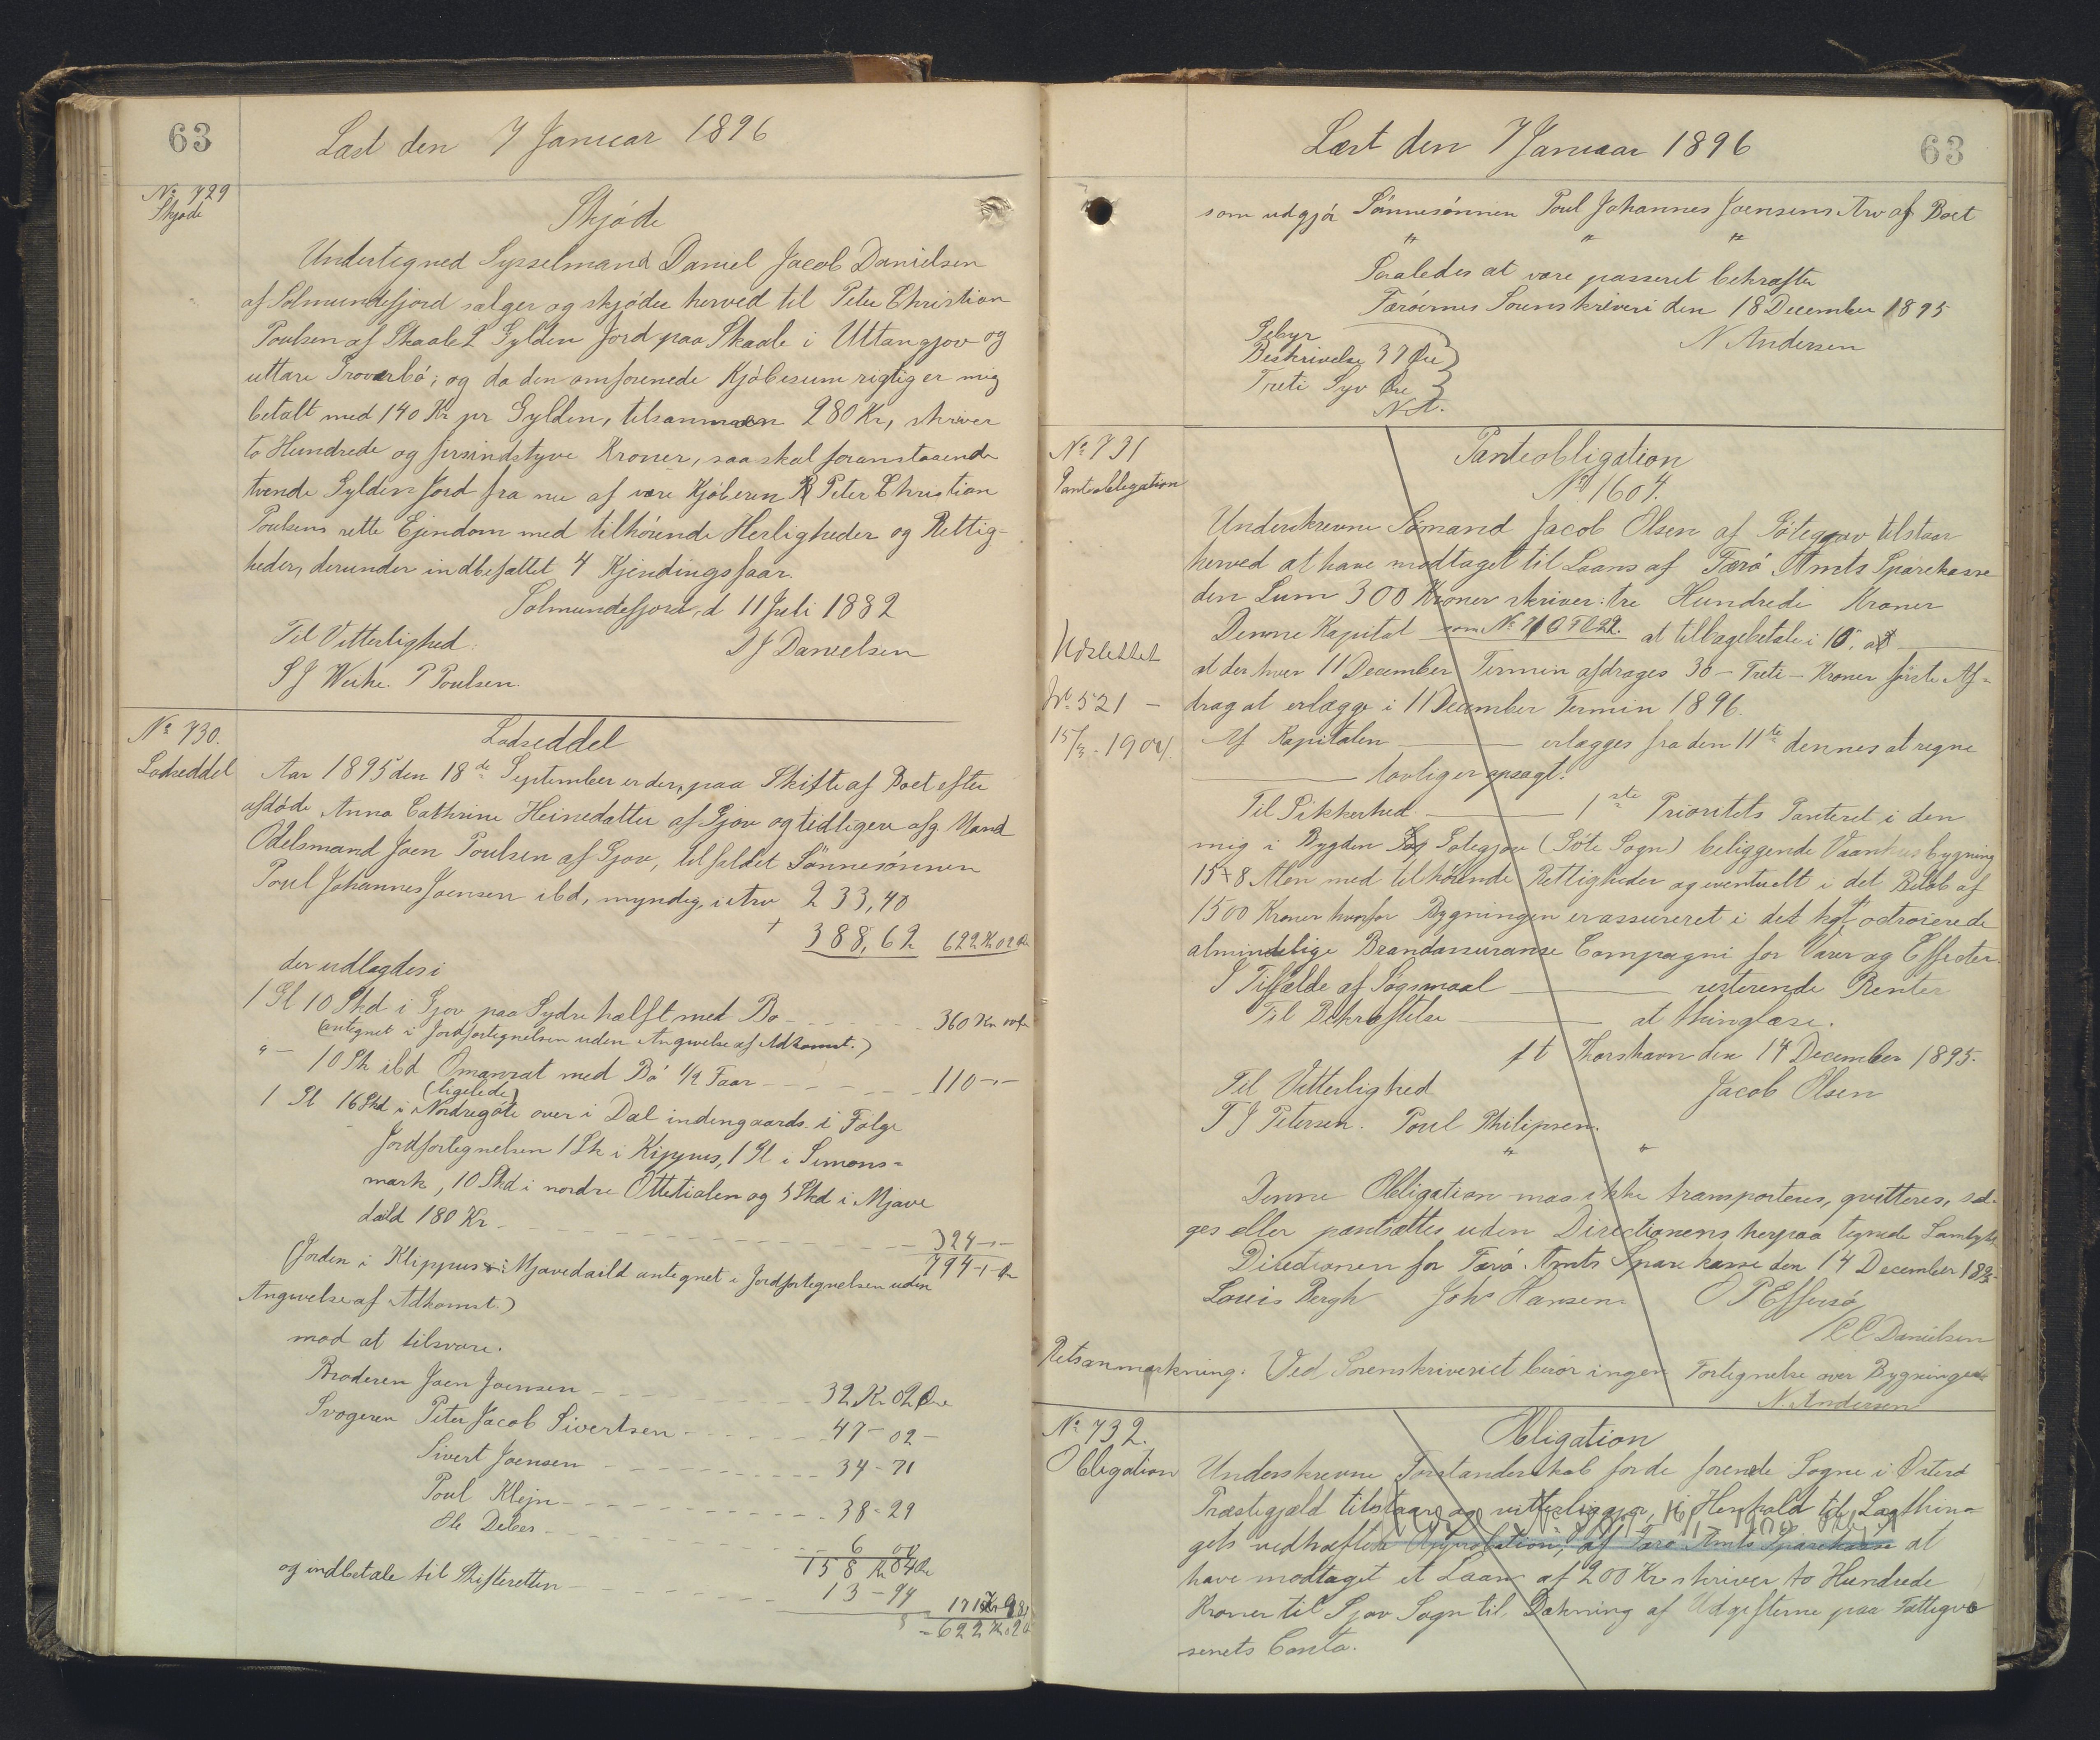 63
Læst den 7 Januar 1896
No 729
Skjøde
Skjøde
Undertegned Sysselmand Daniel Jacob Danielsen
af Solmundefjord sælger og skjøder herved til Peter Christian
Poulsen af Skaale 2 Gylden Jord paa Skaale i Uttangjov og
uttare Troverbø; og da den omforenede Kjøbesum rigtig er mig
betalt med 140 Kr pr Gylden, tilsammen 280 Kr, skriver
to Hundrede og firsindstyve Kroner, saa skal foranstaaende
tvende Gylden Jord fra nu af være Kjøberen Peter Christian
Poulsens rette Ejendom med tilhørende Herligheder og Rettig-
heder, derunder indbefattet 4 Kjendingsfaar.
Solmundefjord, d 11 Juli 1882
Til Vitterlighed.
D J Danielsen
S J Weihe. P Poulsen.
No 730.
Lodseddel
Lodseddel
Aar 1895 den 18de September er der, paa Skifte af Boet efter
afdøde Anna Cathrine Heinedatter af Gjov og tidligere afg Mand
Odelsmand Joen Poulsen af Gjov, tilfaldet Sønnesønnen
Poul Johannes Joensen ibd, myndig, i Arv 233,40
+ 388,62 622 Kr 02 Ør
der udlagdes i
1 Gl 10 Skd i Gjov paa Sydre halft med Bø - - - 360 Kr
(antegnet i Jordfortegnelsen uden Angivelse af Adkomst.)
" - 10 Sk ibd Omanrat med Bø 1/2 Faar - - - 110 - -
(ligelede)
1 Gl 16 Skd i Nordregøte over i Dal indengaards i Følge
Jordfortegnelsen 1 Sk i Kippus, 1 Gl i Simons-
mark, 10 Skd i nordre Ottetialen og 5 Skd i Mjave
daild 180 Kr - - - 324 - -
794 - -
(Jorden i Klippus i Mjavedaild antegnet i Jordfortegnelsen uden
Angivelse af Adkomst.)
mod at tilsvare.
Broderen Joen Joensen - - - 32 Kr 02 Øre
Svogeren Peter Jacob Sivertsen - - - 47 - 02 -
Sivert Joensen - - - 34 - 71
Poul Klejn - - - 38 - 29
Ole Debes - - - 6 00
158 Kr 04 Øre
og indbetale til Skifteretten - - - 13 - 94 171 Kr 98
622 Kr 02
Læst den 7 Januar 1896
63
som udgjør Sønnesønnen Poul Johannes Joensens Arv af Boet
" " "
Saaledes at være passeret bekræfter
Færøernes Sorenskriveri den 18 December 1895
Gebyr
N Andersen
Beskrivelse 37 Øre
Treti Syv Øre
N A.
No 731
Panteobligation
Panteobligation
No 1604.
Underskrevne Sømand Jacob Olsen af Gøtegjov tilstaar
herved at have modtaget til Laans af Færø Amts Sparekasse
den Sum 300 Kroner skriver: tre Hundrede Kroner
Denne Kapital som No at tilbagebetale i 10. a
Udslettet
at der hver 11 December Termin afdrages 30 - Treti - Kroner første Af-
No 521 -
drag at erlægge i 11 December Termin 1896.
15/3 - 1904.
Af Kapitalen - erlægges fra den 11te dennes at regne
- lovlig er opsagt.
Til Sikkerhed - 1ste Prioritets Panteret i den
mig i Bygden Gøtegjov (Gøte Sogn) beliggende Vaanhusbygning
15 x 8 Alen med tilhørende Rettigheder og eventuelt i det Beløb af
1500 Kroner hvorfor Bygningen er assureret i det kgl. octroierede
almindelige Brandassuranse Compagni for Varer og Effecter.
I Tilfælde af Søgsmaal - resterende Renter
Til Bekræftelse - at thinglæse.
pt Thorshavn den 14 December 1895.
Til Vitterlighed
Jacob Olsen
T J Petersen. Poul Philipsen.
" "
Denne Obligation maa ikke transporteres, qvitteres, sæl-
ges eller pantsættes uden Directionens herpaa tegnede Samtykke
Directionen for Færø Amts Sparekasse den 14 December 1895
Louis Bergh Johs Hansen. O P Effersø
/ C C Danielsen
Retsanmærkning: Ved Sorenskriveriet beror ingen Fortegnelse over Bygningen
N. Andersen
No 732.
Obligation
Obligation
Underskrevne Forstanderskab for de forende Sogne i Østerø
Præstegjæld tilstaar og vitterliggjør, i Henhold til Lagthin-
gets vedhæftede Approbation, af Færø Amts Sparekasse at
have modtaget et Laan af 200 Kr skriver to Hundrede
Kroner til Gjov Sogn til Dækning af Udgifterne paa Fattigvæ
senets Conto.